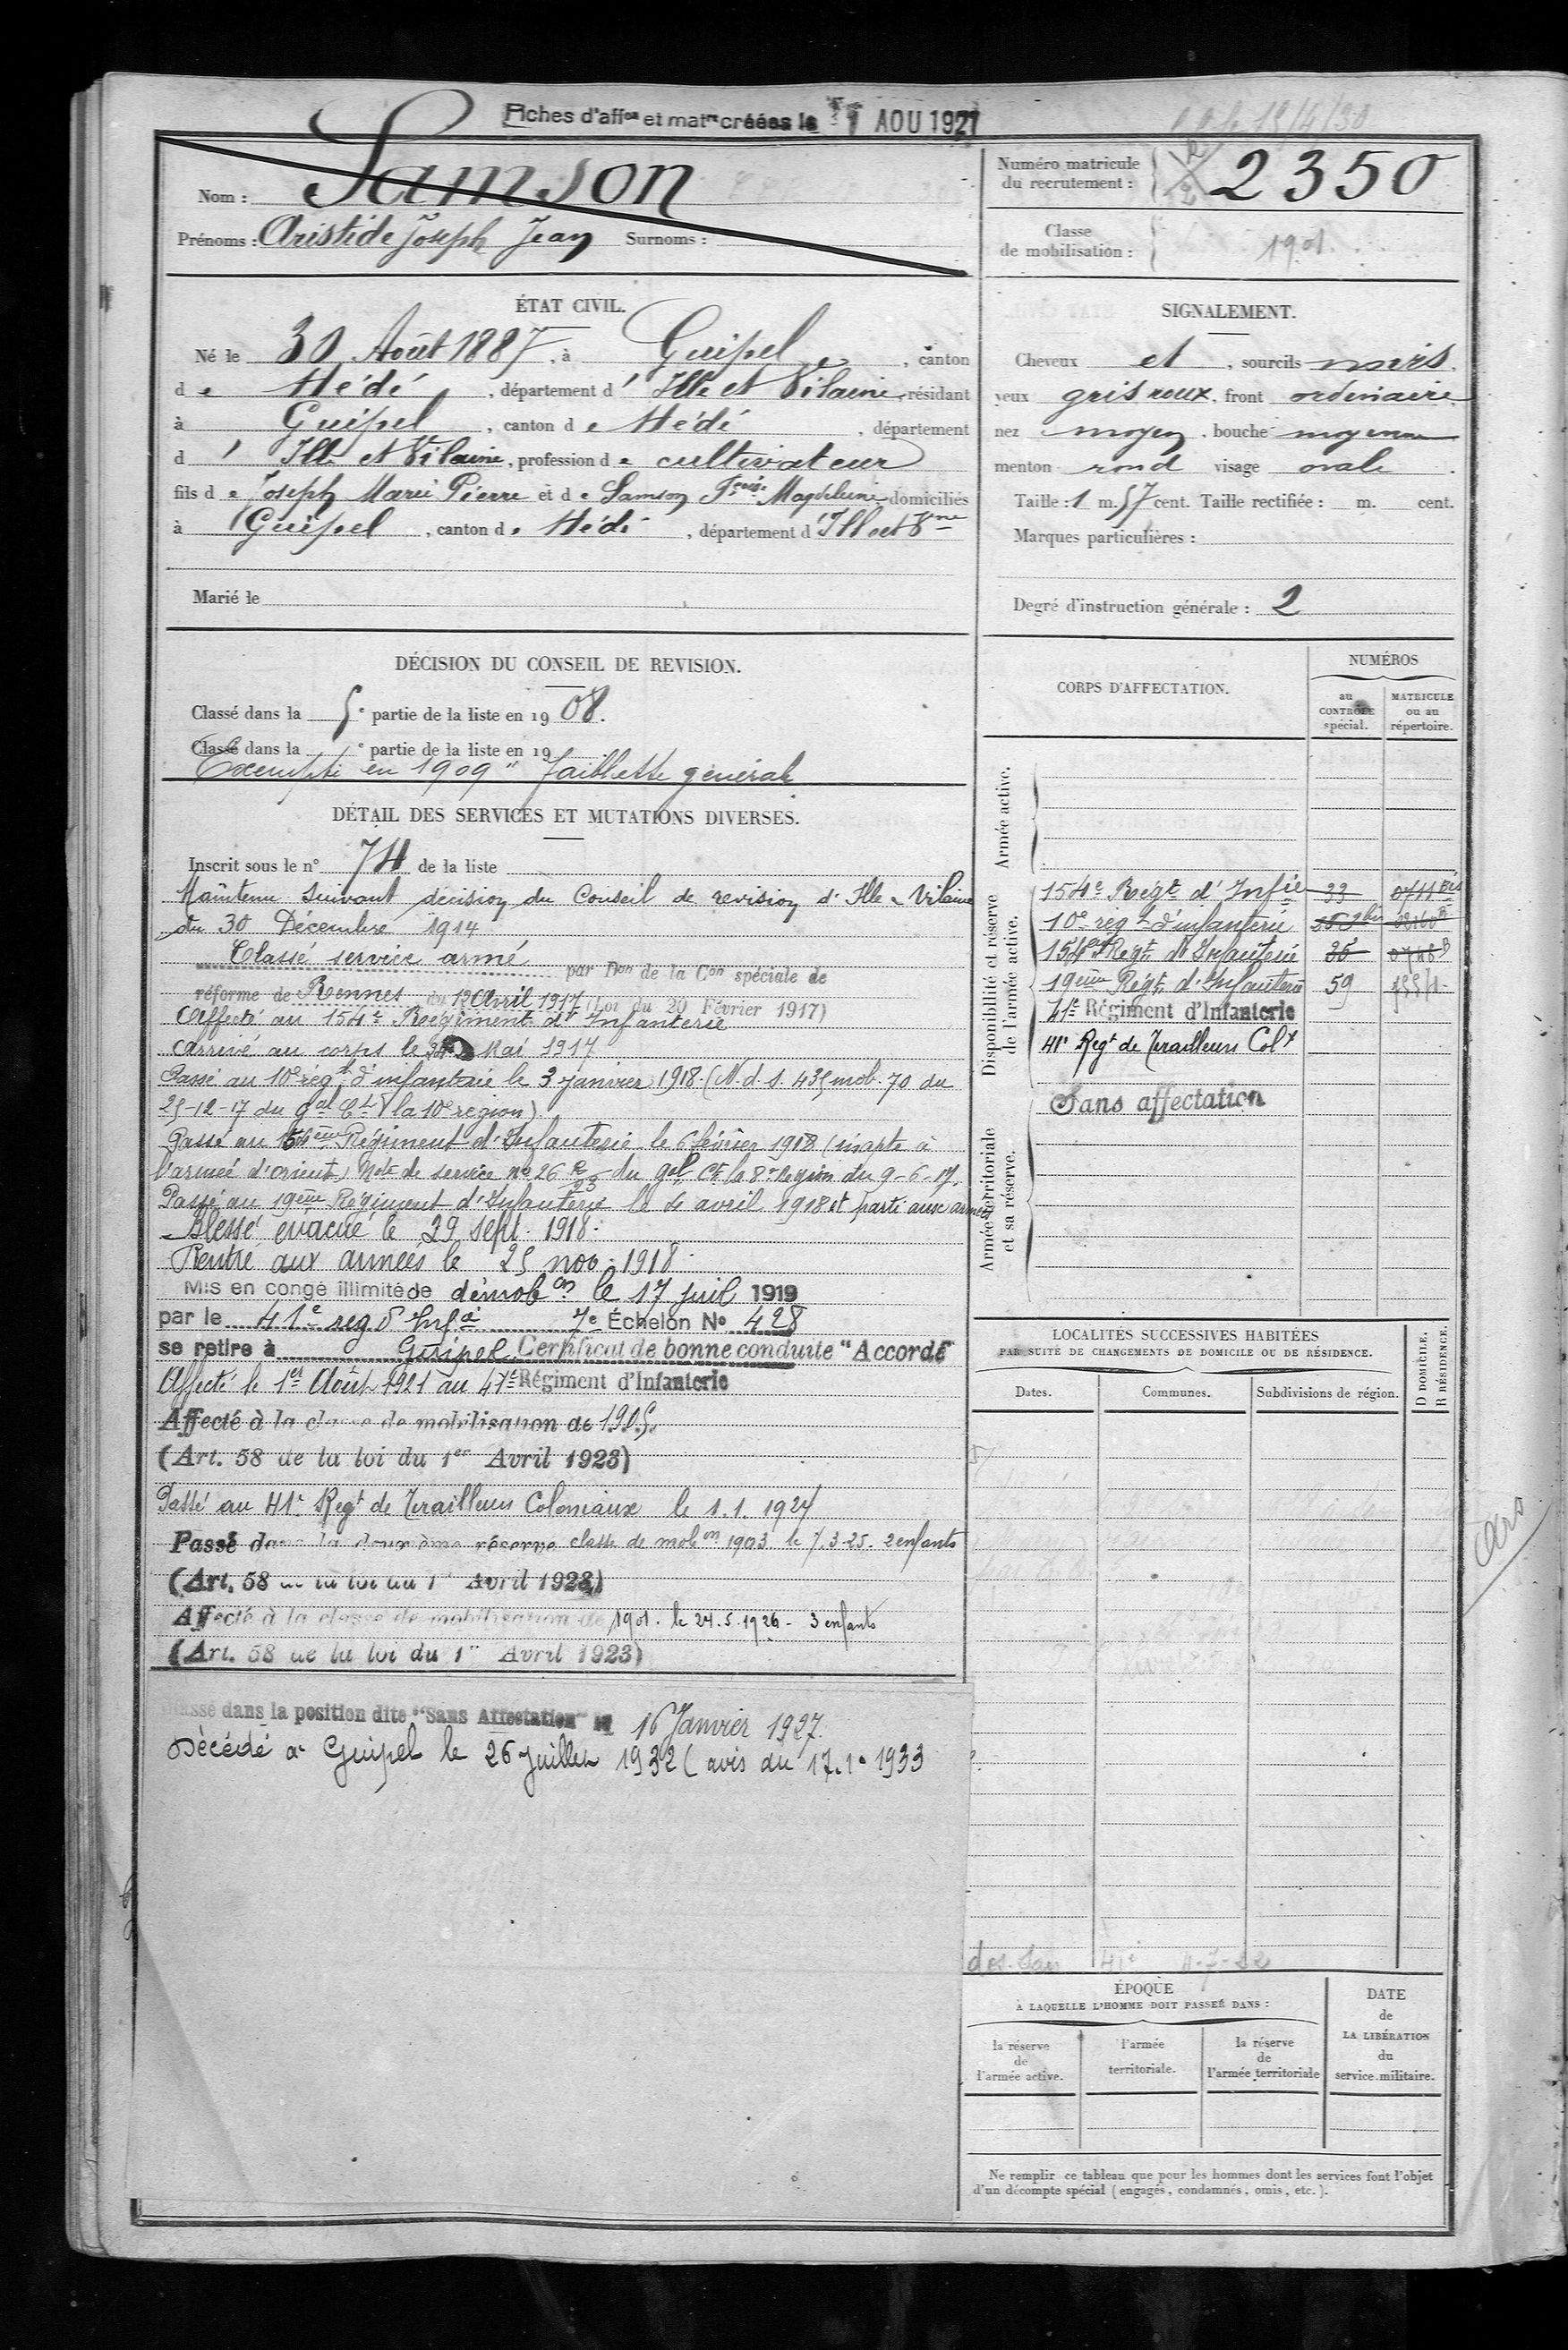 Fiches d'affon et matre créées le 1 AOU 1927
Nom : Samson
Prénoms : Aristide Joseph Jean Surnoms :
Numéro matricule du recrutement : 2350
Classe de mobilisation : 1901.
ÉTAT CIVIL.
Né le 30 Août 1887, à Guipel, canton
de Hédé, département d'Ille et Vilaine, résidant
à Guipel, canton de Hédé, département
d'Ille et Vilaine, profession de cultivateur
fils de Joseph Marie Pierre et de Samson Fçoise Magdeleine domiciliés
à Guipel, canton de Hédé, département d'Ille et Vne
Marié le
SIGNALEMENT.
Cheveux et, sourcils noirs.
yeux gris roux, front ordinaire
nez moyen, bouche moyenne
menton rond visage ovale.
Taille : 1 m. 57 cent. Taille rectifiée : m. cent.
Marques particulières :
Degré d'instruction générale : 2
DÉCISION DU CONSEIL DE REVISION.
Classé dans la 5e partie de la liste en 1908.
Classé dans la e partie de la liste en 19
Exempté en 1909 " faiblesse générale
DÉTAIL DES SERVICES ET MUTATIONS DIVERSES.
Inscrit sous le n° 74 de la liste
Maintenu suivant décision du Conseil de revision d'Ille & Vilaine
du 30 Décembre 1914
Classé service armé par Don de la Con spéciale de
réforme de Rennes du 12 Avril 1917 (Loi du 20 Février 1917)
Affecté au 154e Régiment d'Infanterie
Arrivé au corps le Mai 1917
Passé au 10e régt d'infanterie le 3 janvier 1918. (N. d. s. 435 mob. 70 du
25-12-17 du gal Ct la 10e région)
Passé au 154ème Régiment d'Infanterie le 6 février 1918 (inapte à
l'armée d'orient) Note de service no 26 du gal Ct la 8e Région du 9-6-17.
Passé au 19ème Régiment d'Infanterie le 4 avril 1918 et parti aux armées
Blessé évacué le 29 sept. 1918.
Rentré aux armées le 25 nov. 1918.
Mis en congé illimité de démobon le 17 juil 1919
par le 41e reg d'Infie 7e Échelon No 428
se retire à Guipel Certificat de bonne conduite "Accordé"
Affecté le 1er Août 1921 au 41e Régiment d'Infanterie
Affecté à la classe de mobilisation de 1905.
(Art. 58 de la loi du 1er Avril 1923)
Passé au 41e Regt de Tirailleurs Coloniaux le 1.1. 1924
Passé dans la deuxième réserve classe de mobon 1903 le 7.3-25. 2 enfants
(Art. 58 de la loi du 1er Avril 1923)
Affecté à la classe de mobilisation de 1901. le 24.5.1926 - 3 enfants
(Art. 58 de la loi du 1er Avril 1923)
Classé dans la position dite "Sans Affectation" le 16 Janvier 1927.
Décédé à Guipel le 26 Juillet 1932 (avis du 17.1. 1933
CORPS D'AFFECTATION.
NUMÉROS
au CONTRÔLE spécial.
MATRICULE ou au répertoire.
Armée active.
Disponibilité et réserve de l'armée active.
154e Régt d'Infie 33 0711 Bis
10e régt d'infanterie
154e Regt d'Infanterie 35 0748 B
19ème Régt d'Infanterie 59
41e Régiment d'Infanterie
41e Regt de Tirailleurs Colx
Armée territoriale et sa réserve.
Sans affectation
LOCALITÉS SUCCESSIVES HABITÉES
PAR SUITE DE CHANGEMENTS DE DOMICILE OU DE RÉSIDENCE.
Dates. Communes. Subdivisions de région.
D DOMICILE.
R RÉSIDENCE.
41e 4-7-22
ÉPOQUE
À LAQUELLE L'HOMME DOIT PASSER DANS :
la réserve de l'armée active.
l'armée territoriale.
la réserve de l'armée territoriale
DATE de LA LIBÉRATION du service militaire.
Ne remplir ce tableau que pour les hommes dont les services font l'objet
d'un décompte spécial (engagés, condamnés, omis, etc.).